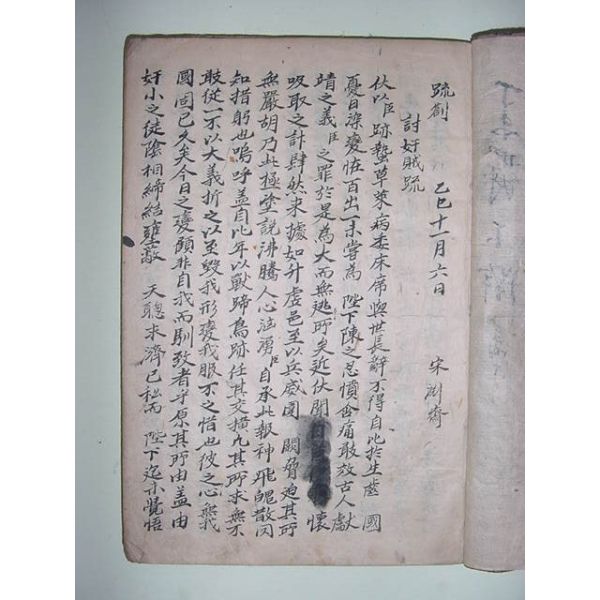 疏劄 乙巳十一月六日 宋淵齋
討奸賊疏
伏以臣跡蟄草萊病委床席與世長辭不得自比於生齒 國
憂日深變恠百出一未嘗爲 陛下陳之忍憤含痛敢效古人獻
靖之義臣之罪於是為大而無逃所矣近伏聞日 懷
吸取之計肆然來據如升虛邑至以兵威圍 闕脅迫其所
無嚴胡乃此極塗說沸騰人心洶湧臣自承此報神飛魄散罔
知措躬也嗚呼盖自比年以獸蹄鳥跡任其交橫凡其所求無不
敢從一不以大義折之以至毀我形變我服不之惜也彼之心無我
國固已久矣今日之變顧非自我而馴致者乎原其所由盖由
奸小之徒陰相締結壅蔽 天聰求濟己私而 陛下迄未覺悟